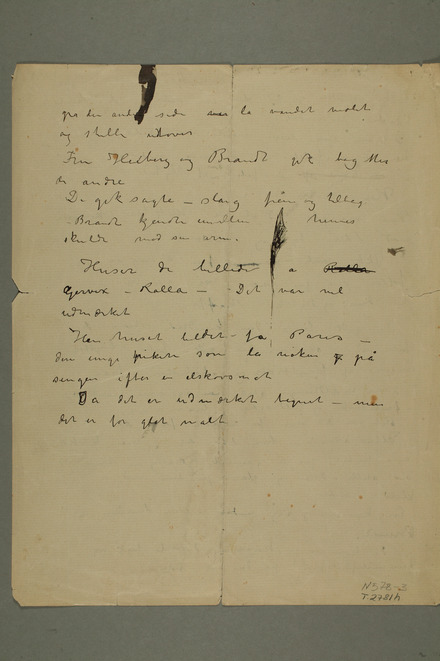 på den anden side la vandet mørkt
og stille udover
Fru Heiberg og Brandt gik bag efter
de andre
De gik sagte – slang frem og tilbag
– Brandt kjendte imellem hennes
skulde mod sin arm.
Husker De billedet a Rolla
Gervex – Rolla – Det var vel
udmærket
Han husket billedet fra Paris –
den unge piken som la naken på
sengen efter en elskovsnat
Ja det er udmærket tegnet – men
det er for glat malt
N 578-3
T 2781h